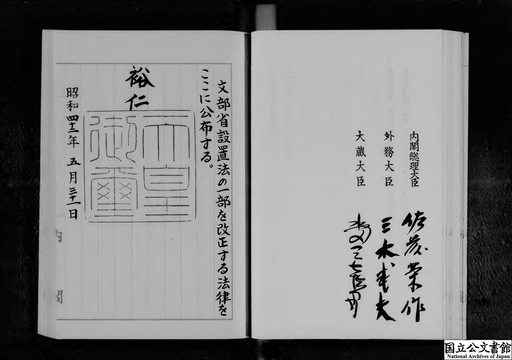 内閣総理大臣 佐藤榮作
外務大臣 三木武夫
大蔵大臣 水田三喜男
文部省設置法の一部を改正する法律を
ここに公布する。
裕仁
天皇
御璽
昭和四十二年五月三十一日
内閣
国立公文書館
National Archives of Japan